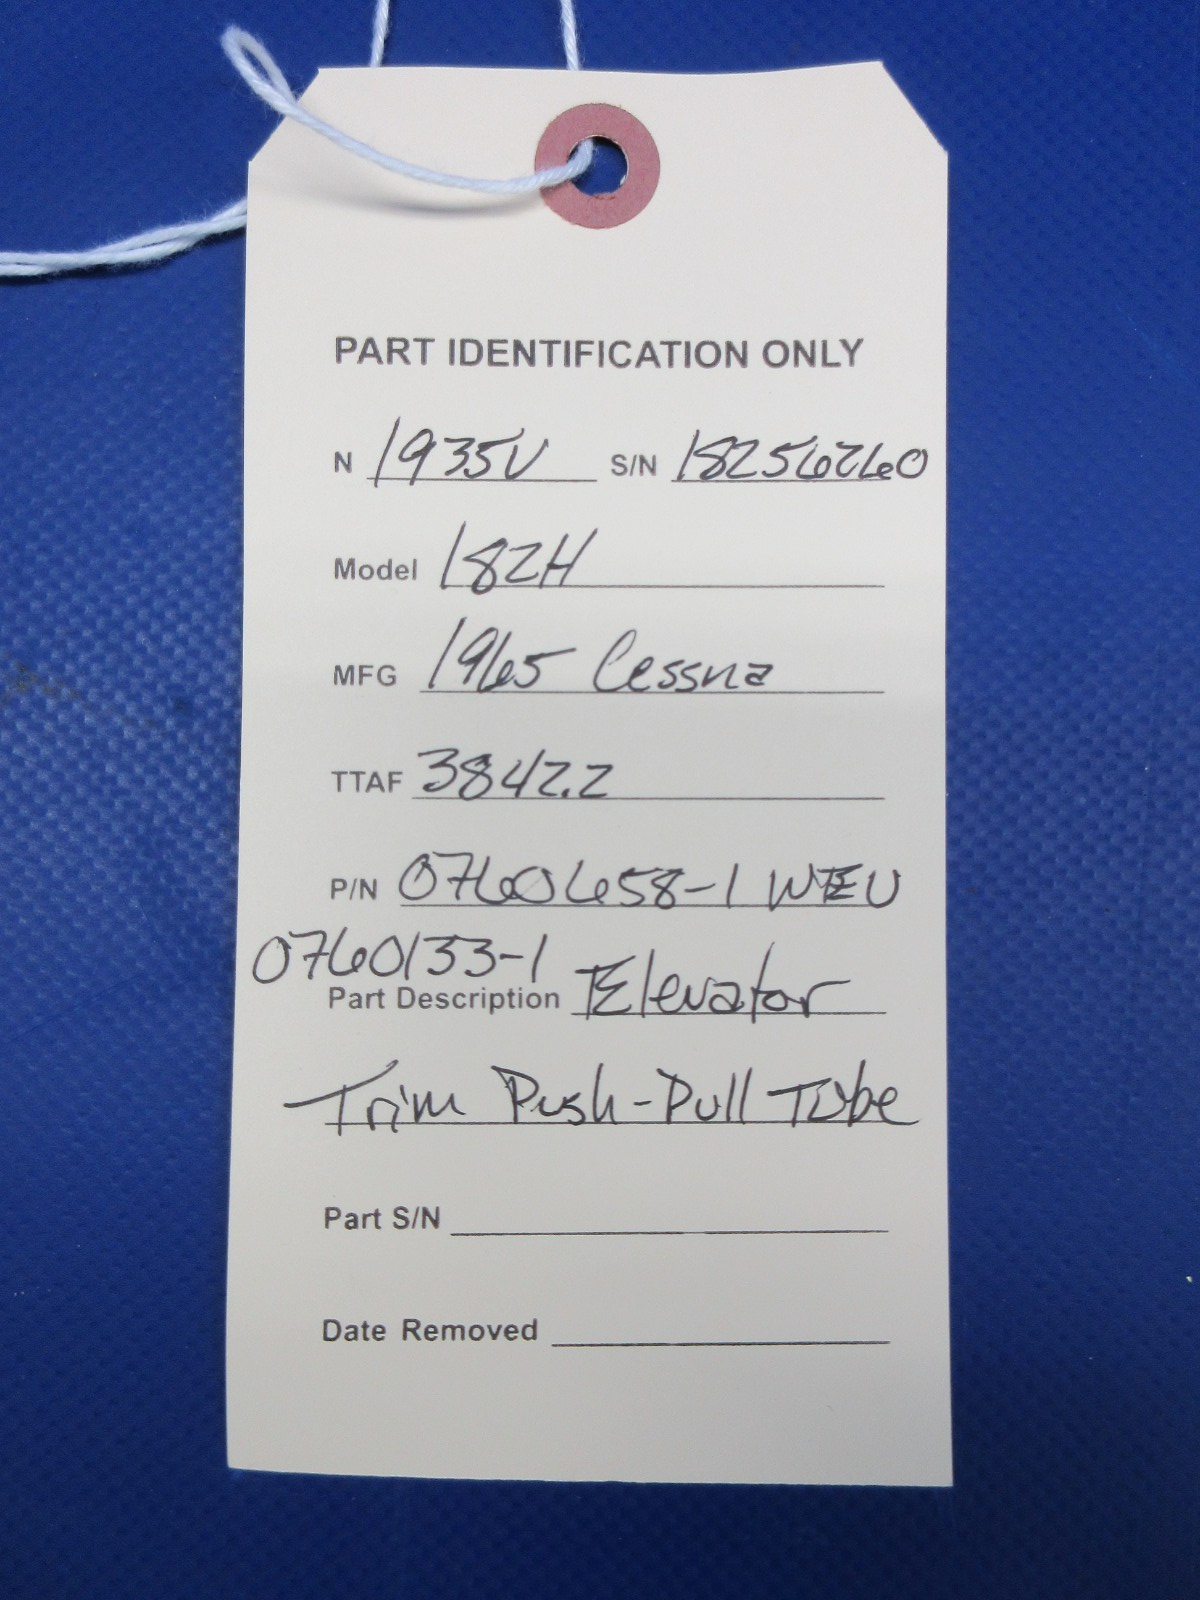 PART IDENTIFICATION ONLY
N 1935U S/N 18256260
Model 182H
MFG 1965 Cessna
TTAF 3842.2
P/N 0760658-1 WTEU
0760133-1
Part Description Elevator
Trim Push-Pull Tube
Part S/N
Date Removed